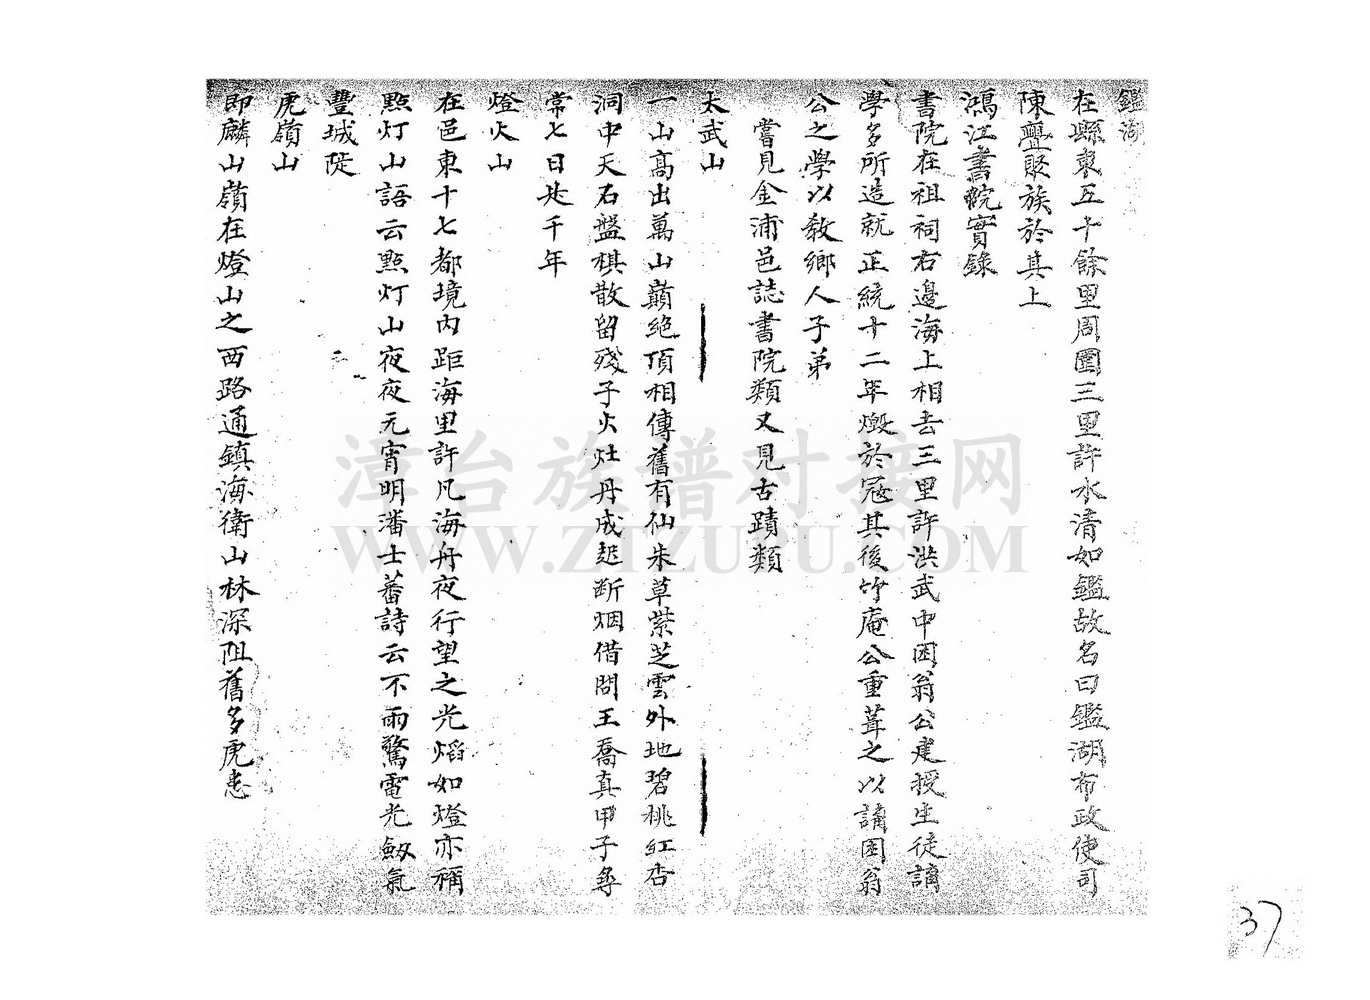 鑑湖
在縣東五十餘里周圍三里許水清如鑑故名曰鑑湖布政使司
陳壟聚族於其上
鴻江書院實錄
書院在祖祠右邊海上相去三里許洪武中困翁公建授生徒講
學多所造就正統十二年燬於寇其後竹庵公重葺之以講困翁
公之學以教鄉人子弟
嘗見金浦邑誌書院類又見古蹟類
太武山
一山高出萬山巔絕頂相傳舊有仙朱草紫芝雲外地碧桃紅杏
洞中天石盤棋散留殘子火灶丹成起断烟借問王喬真甲子尋
常七日是千年
燈火山
在邑東十七都境内距海里許凡海舟夜行望之光熖如燈亦稱
點灯山語云點灯山夜夜元宵明潘士蕃詩云不雨驚電光劔氣
豐城陡
虎嶺山
即麟山嶺在燈山之西路通鎮海衛山林深阻舊多虎患
漳台族谱对接网
WWW.ZTZUPU.COM
37